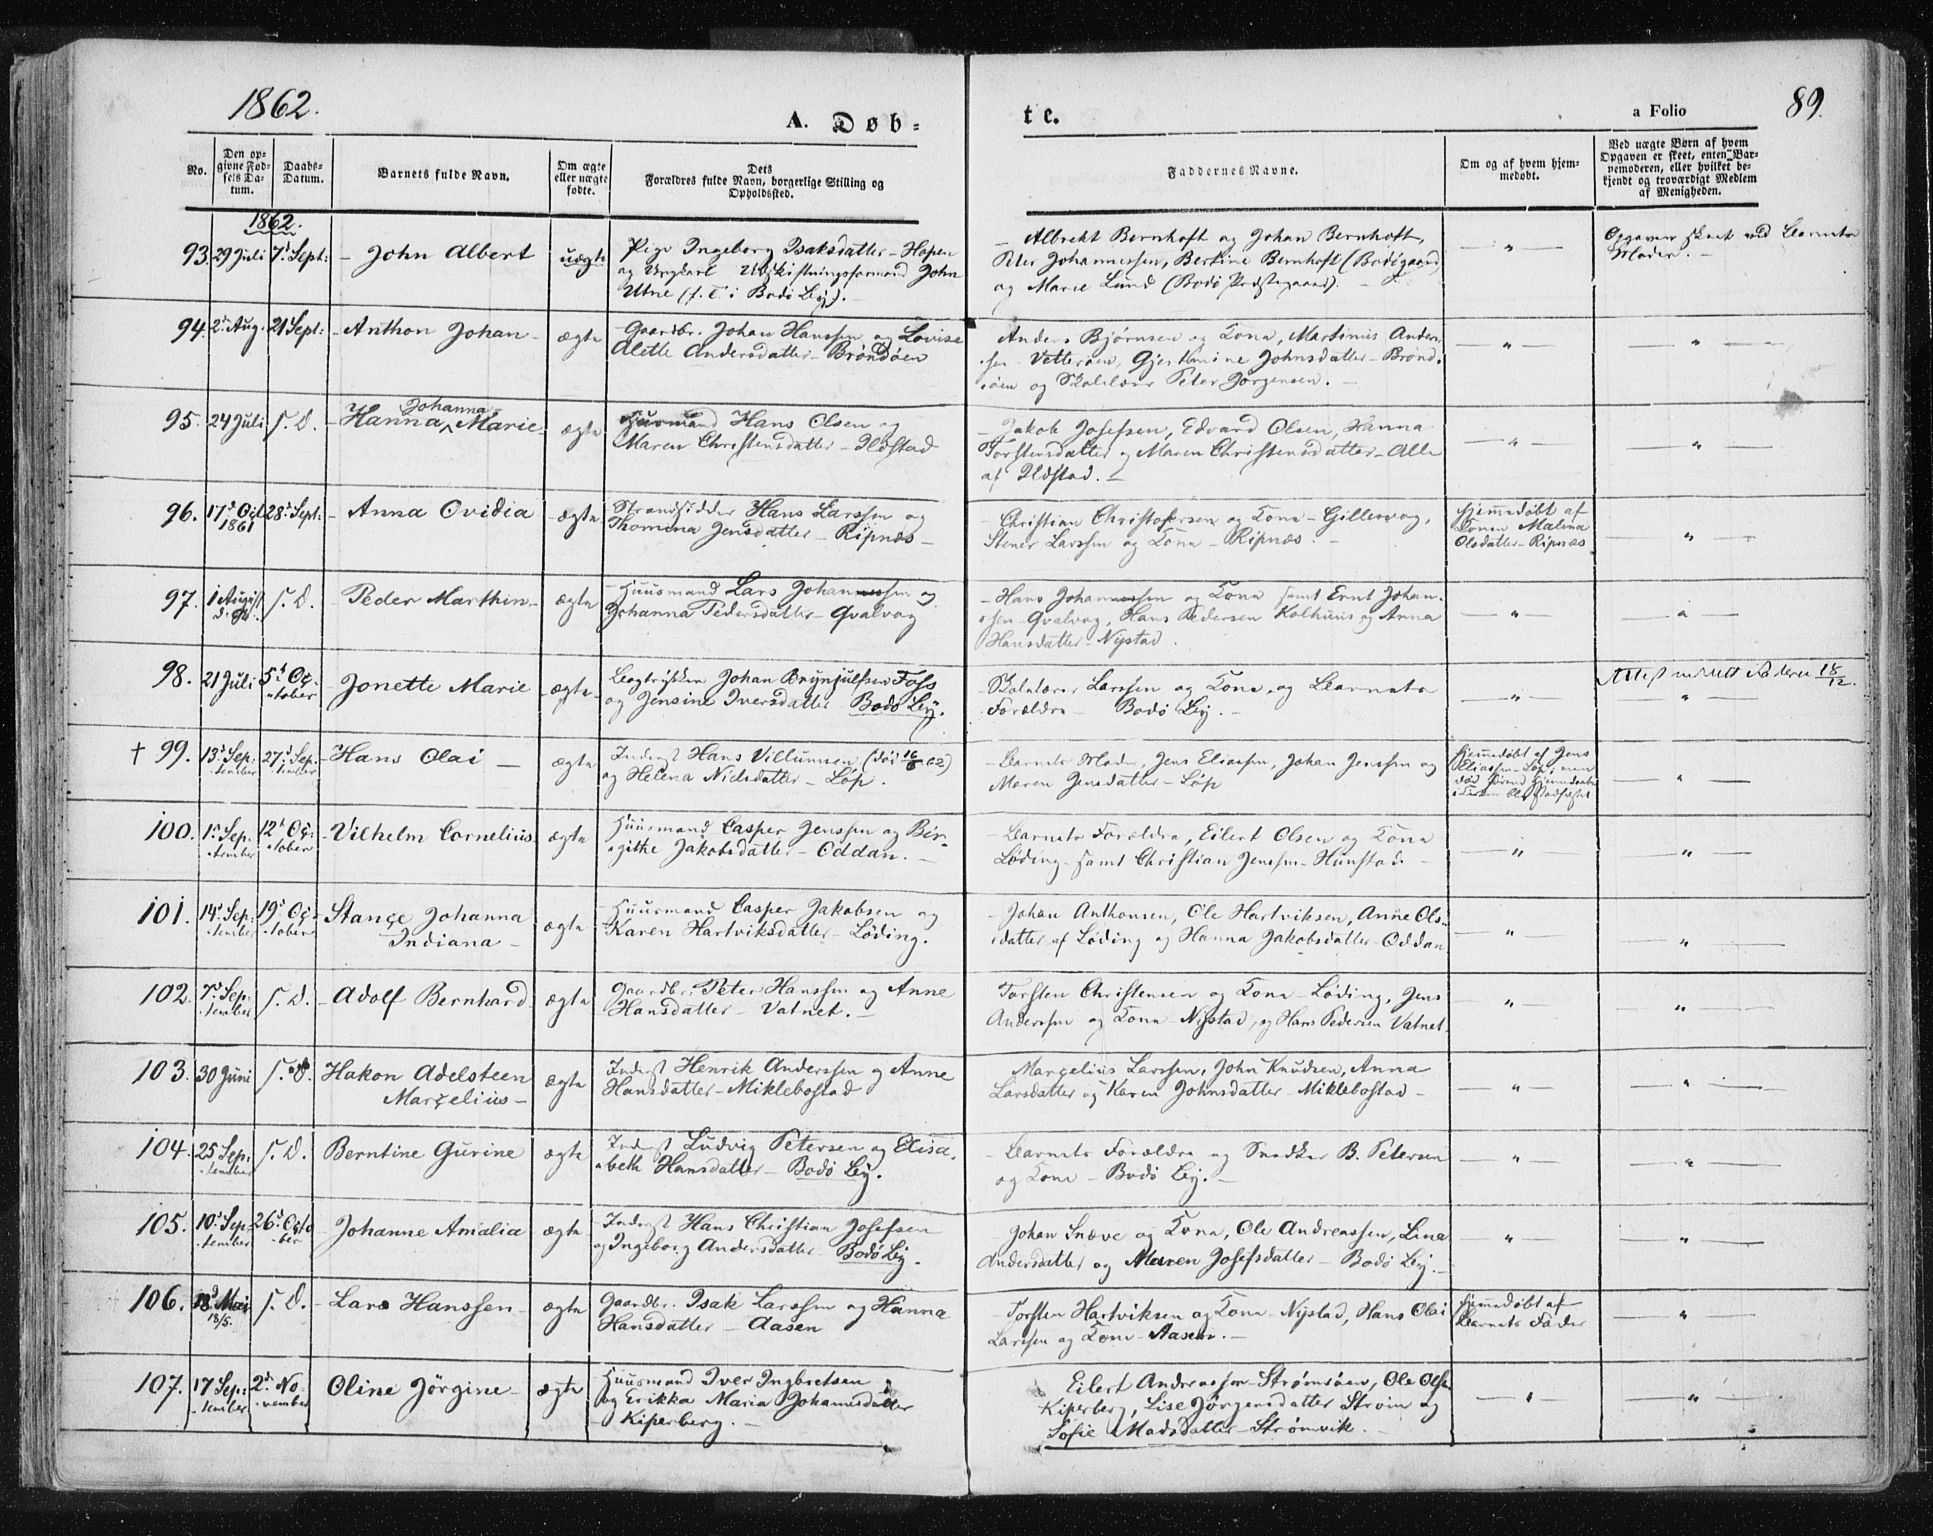 1862.
A. Døb-
te.
a Folio
89.
No.
Den op-
givne Fød-
sels Da-
tum.
Daabs-
Datum.
Barnets fulde Navn.
Om ægte
eller uægte
fødte.
Dets
Forældres fulde Navn, borgerlige Stilling og
Opholdssted.
Faddernes Navne.
Om og af hvem hjem-
medøbt.
Ved uægte Børn af hvem
Opgaven er skeet, enten Bar-
nemoderen, eller hvilket be-
kjendt og troværdigt Medlem
af Menigheden.
1862.
93. 29 Juli 7d Sept: - John Albert uægte
Pige Ingeborg Isaksdatter - Hopen
og Ungkarl Udskiftningsformand John
Utne (f. T. i Bodö By). -
- Albrekt Bernhoft og Johan Bernhoft,
Peter Johannessen, Bertine Bernhoft (Bodøgaard)
og Marie Lund (Bodö Præstegaard). -
- " -
Opgaven skeet ved Barnets
Moder. -
94. 2d Aug. 21 Sept: - Anthon Johan - ægte
Gaardbr. Johan Hanssen og Lovise
Alette Andersdatter - Bröndöen
Anders Bjørnsen og Kone, Martinus Anders-
sen - Vetteröen, Gjertmine Johnsdatter - Brönd-
öen og Skolelærer Peter Jörgensen. -
- " -
- " -
95. 24 Juli S. D. - Hanna Johanna Marie - ægte
Huusmand Hans Olsen og
Maren Christensdatter - Ildstad
- Jakob Josefsen, Edvard Olsen, Hanna
Torstensdatter og Maren Christensdatter - Alle
af Ildstad. -
- " -
"
96. 17d Oct 1861 28d Sept: - Anna Ovidia - ægte
Strandsidder Hans Larssen og
Thomina Jensdatter - Ripnæs -
- Christian Christofersen og Kone - Gillesvog,
Stener Larssen og Kone - Ripnæs. -
Hjemmedøbt af
Konen Malena
Olsdatter - Ripnæs
- " -
97. 1 August S. D. - Peder Marthin - ægte
Huusmand Lars Johannessen og
Johanna Pedersdatter - Qvalvog
- Hans Johannessen og Kone samt Ernt Johan-
sen - Qvalvog, Hans Pedersen Kolhuus og Anna
Hansdatter - Nystad.
- " -
- " -
98. 21 Juli 5d Oc-
tober - Jonette Marie - ægte
Johan Brynjulfsen Foss
og Jensine Iversdatter Bodö By.
Skolelærer Larssen og Kone, og Barnets
Forældre - Bodö By. -
- " -
18/12.
"
† 99. 13d Sep-
tember 27d Sep-
tember - Hans Olai - ægte
Inderst Hans Villumsen
og Helena Nielsdatter - Löp.
- Barnets Moder, Jens Eliassen, Johan Jenssen og
Maren Jensdatter - Löp
Hjemmedøbt af Jens
Eliassen - Löp, men
død førend Hjemmedaaben
i Kirken blev stadfæstet
- " -
100. 1d Sep-
tember 12d Oc-
tober - Vilhelm Cornelius ægte
Huusmand Casper Jenssen og Bir-
githe Jakobsdatter - Oddan. -
- Barnets Forældre, Eilert Olsen og Kone
Löding - samt Christian Jenssen - Hunstad -
- " -
- " -
101. 14d Sep-
tember 19d Oc-
tober Stance Johanna
Indiana - ægte
- Huusmand Casper Jakobsen og
Karen Hartviksdatter - Löding.
- Johan Anthonsen, Ole Hartviksen, Anne Ols-
datter af Löding og Hanna Jakobsdatter - Oddan
- " -
- " -
102. 7d Sep-
tember S. D. - Adolf Bernhard ægte
Gaardbr. Peter Hanssen og Anne
Hansdatter - Vatnet. -
Torsten Christensen og Kone - Löding, Jens
Anderssen og Kone - Nystad, og Hans Pedersen Vatnet.
- " -
- " -
103. 30 Juni S. D. Hakon Adelsteen
Marcelius - ægte
Inderst Henrik Anderssen og Anne
Hansdatter - Miklebostad
Marcelius Larssen, John Knudsen, Anna
Larsdatter og Karen Johnsdatter - Miklebostad -
- " -
- " -
104. 25 Sep-
tember S. D. Berntine Gurine ægte
Inderst Ludvig Petersen og Elisa-
beth Hansdatter - Bodö By.
- Barnets Forældre og Snedker B. Petersen
og Kone - Bodö By. -
- " -
- " -
105. 10d Sep-
tember 26d Octo-
ber - Johanne Amalia ægte
Inderst Hans Christian Josefsen
og Ingeborg Andersdatter - Bodö By.
Johan Snæve og Kone, Ole Andreassen, Lina
Andersdatter og Maren Josefsdatter - Bodö By. -
"
- " -
106. 18d Mai
18/5. S. D. - Lars Hanssen - ægte
Gaardbr. Isak Larssen og Hanna
Hansdatter - Aasen
- Torsten Hartviksen og Kone - Nystad, Hans Olai
Larssen og Kone - Aasen. -
Hjemmedøbt af
Barnets Fader
- " -
107. 17 Sep-
tember 2d No-
vember Oline Jörgine - ægte
Huusmand Iver Ingbretsen
og Erikka Maria Johannesdatter
- Kiperberg. -
Eilert Andreassen - Strømsöen, Ole Olsen
Kiperberg, Lise Jörgensdatter Ström og
Sofie Madsdatter - Strömvik. -
- " -
- " -